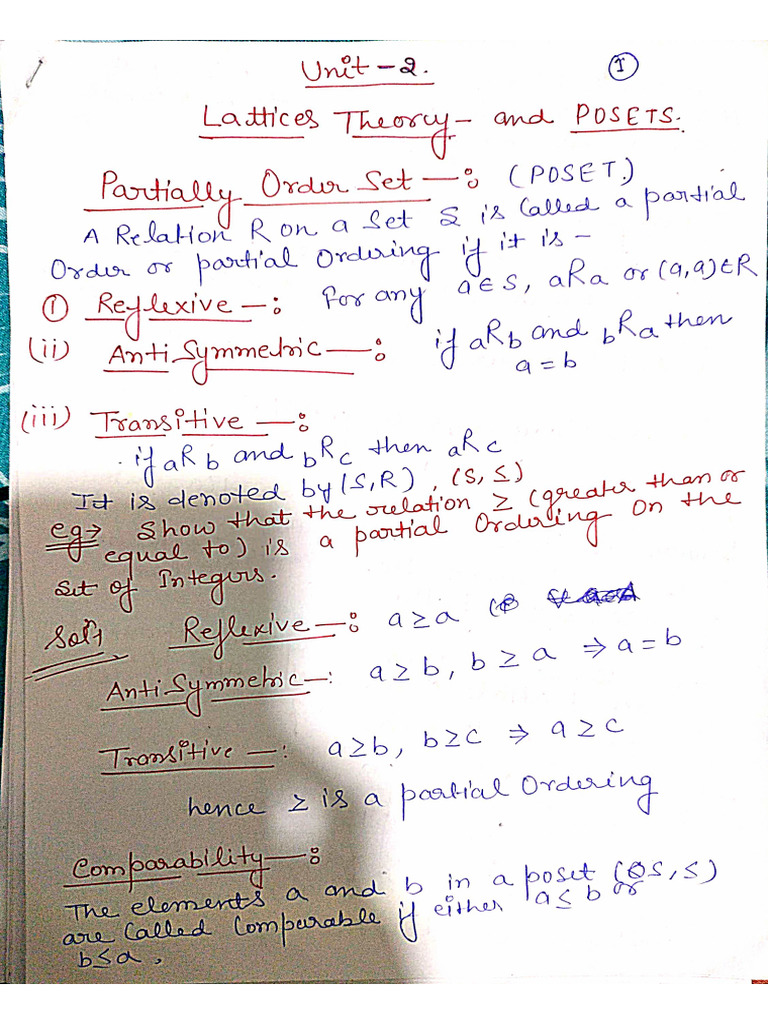 Unit - 2. ①
Lattices Theory - and POSETS.
Partially Order Set —: (POSET)
A Relation R on a Set S is Called a partial
Order or partial Ordering if it is -
① Reflexive —: For any a∈S, aRa or (a,a)∈R
(ii) Anti Symmetric —: if aRb and bRa then
a = b
(iii) Transitive —:
if aRb and bRc then aRc
It is denoted by (S,R), (S,≤)
eg→ Show that the relation ≥ (greater than or
equal to) is a partial Ordering On the
Set of Integers.
Solⁿ Reflexive —: a≥a
Anti Symmetric —: a≥b, b≥a ⇒ a=b
Transitive —: a≥b, b≥c ⇒ a≥c
hence ≥ is a partial Ordering
Comparability —:
The elements a and b in a poset (S,≤)
are Called Comparable if either a≤b or
b≤a.